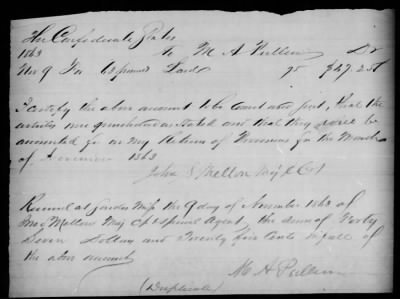 The Confederate States
1863 To M. A. Pullen Dr
Nov 9 For 63 pounds Lard 75 $47.25
I certify the above account to be correct and just, that the
articles were purchased as stated and that they will be
accounted for on my Return of Provisions for the Month
of November 1863
John S Mellon Maj & CS
Received at Miss the 9 day of November 1863 of
Maj Mellon Maj Agent, the sum of Forty
Seven Dollars and Twenty five Cents in full of
the above account
M. A. Pullen
(Duplicate)